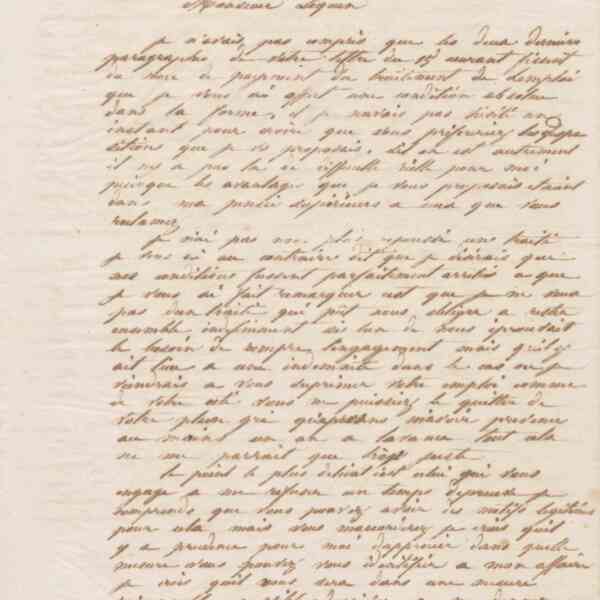 Monsieur Lequen
Je n'avais pas compris que les deux derniers
paragraphes de votre lettre du 15 courant fissent
du mode de payement du traitement de l'emploi
que je vous ai offert une condition absolue
dans la forme, et je n'avais pas hésité un
instant pour croire que vous préfériez les
sitions que je vs proposais. S'il en est autrement
il n'y a pas là de difficulté réelle pour moi
puisque les avantages que je vous proposais étaient
dans ma pensée supérieurs a ceux que vous
reclamez
Je n'ai pas non plus repoussé un traité
je vous ai au contraire dit que je désirais que
nos conditions fussent parfaitement arrêtés a que
je vous ai fait remarquer c'est que je ne veux
pas d'un traité qui pût nous obliger a rester
ensemble indéfiniment si l'un de nous éprouvait
le besoin de rompre l'engagement mais qu'il y
ait lieu a une indemnité dans le cas ou je
viendrais a vous supprimer votre emploi comme
de votre côté vous ne puissiez le quitter de
votre plein gré qu'après m'avoir prévenu
au moins un an a l'avance tout cela
ne me parrait que trop juste
Le point le plus délicat c'est celui qui vous
engage a me refuser un temps d'épreuve je
comprends que vous pouvez avoir des motifs légitimes
pour cela mais vous m'accorderez je crois qu'il
y a prudence pour moi d'apprécier dans quelle
mesure vous pouvez vous identifier a mon affaire
je crois qu'il vous sera dans une mesure